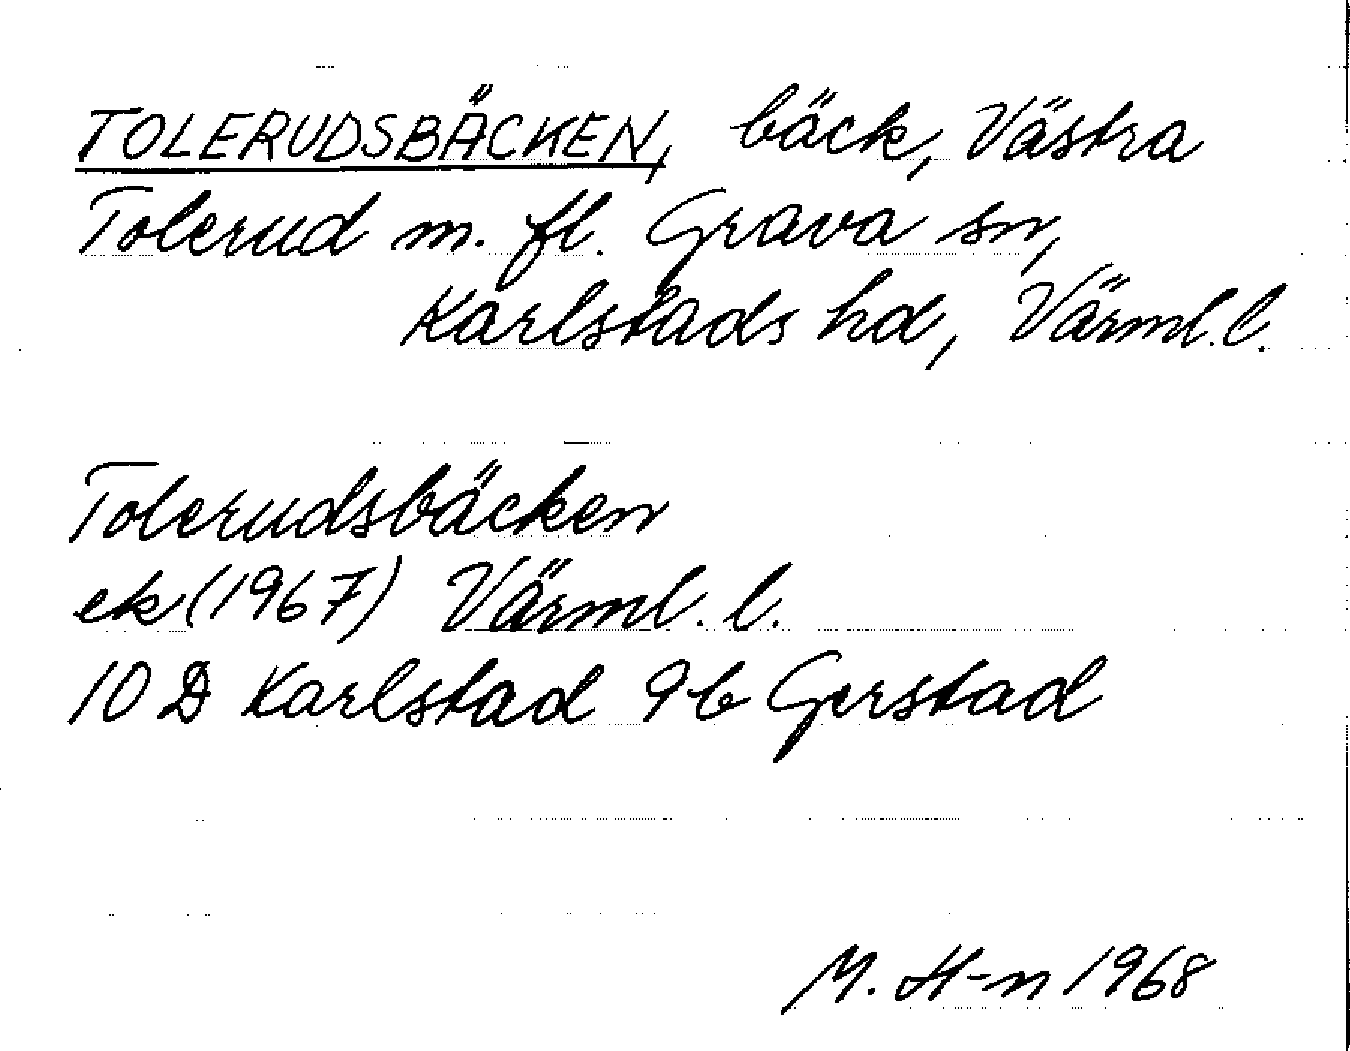 TOLERUDSBÄCKEN, bäck, Västra
Tolerud m. fl. Grava sn,
Karlstads hd, Värml. l.
Tolerudsbäcken
ek (1967) Värml. l.
10 D Karlstad 9b Gerstad
M. H-n 1968